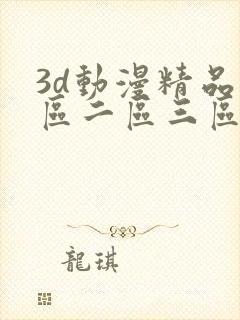 3d動漫精品
區二區三區
龍琪